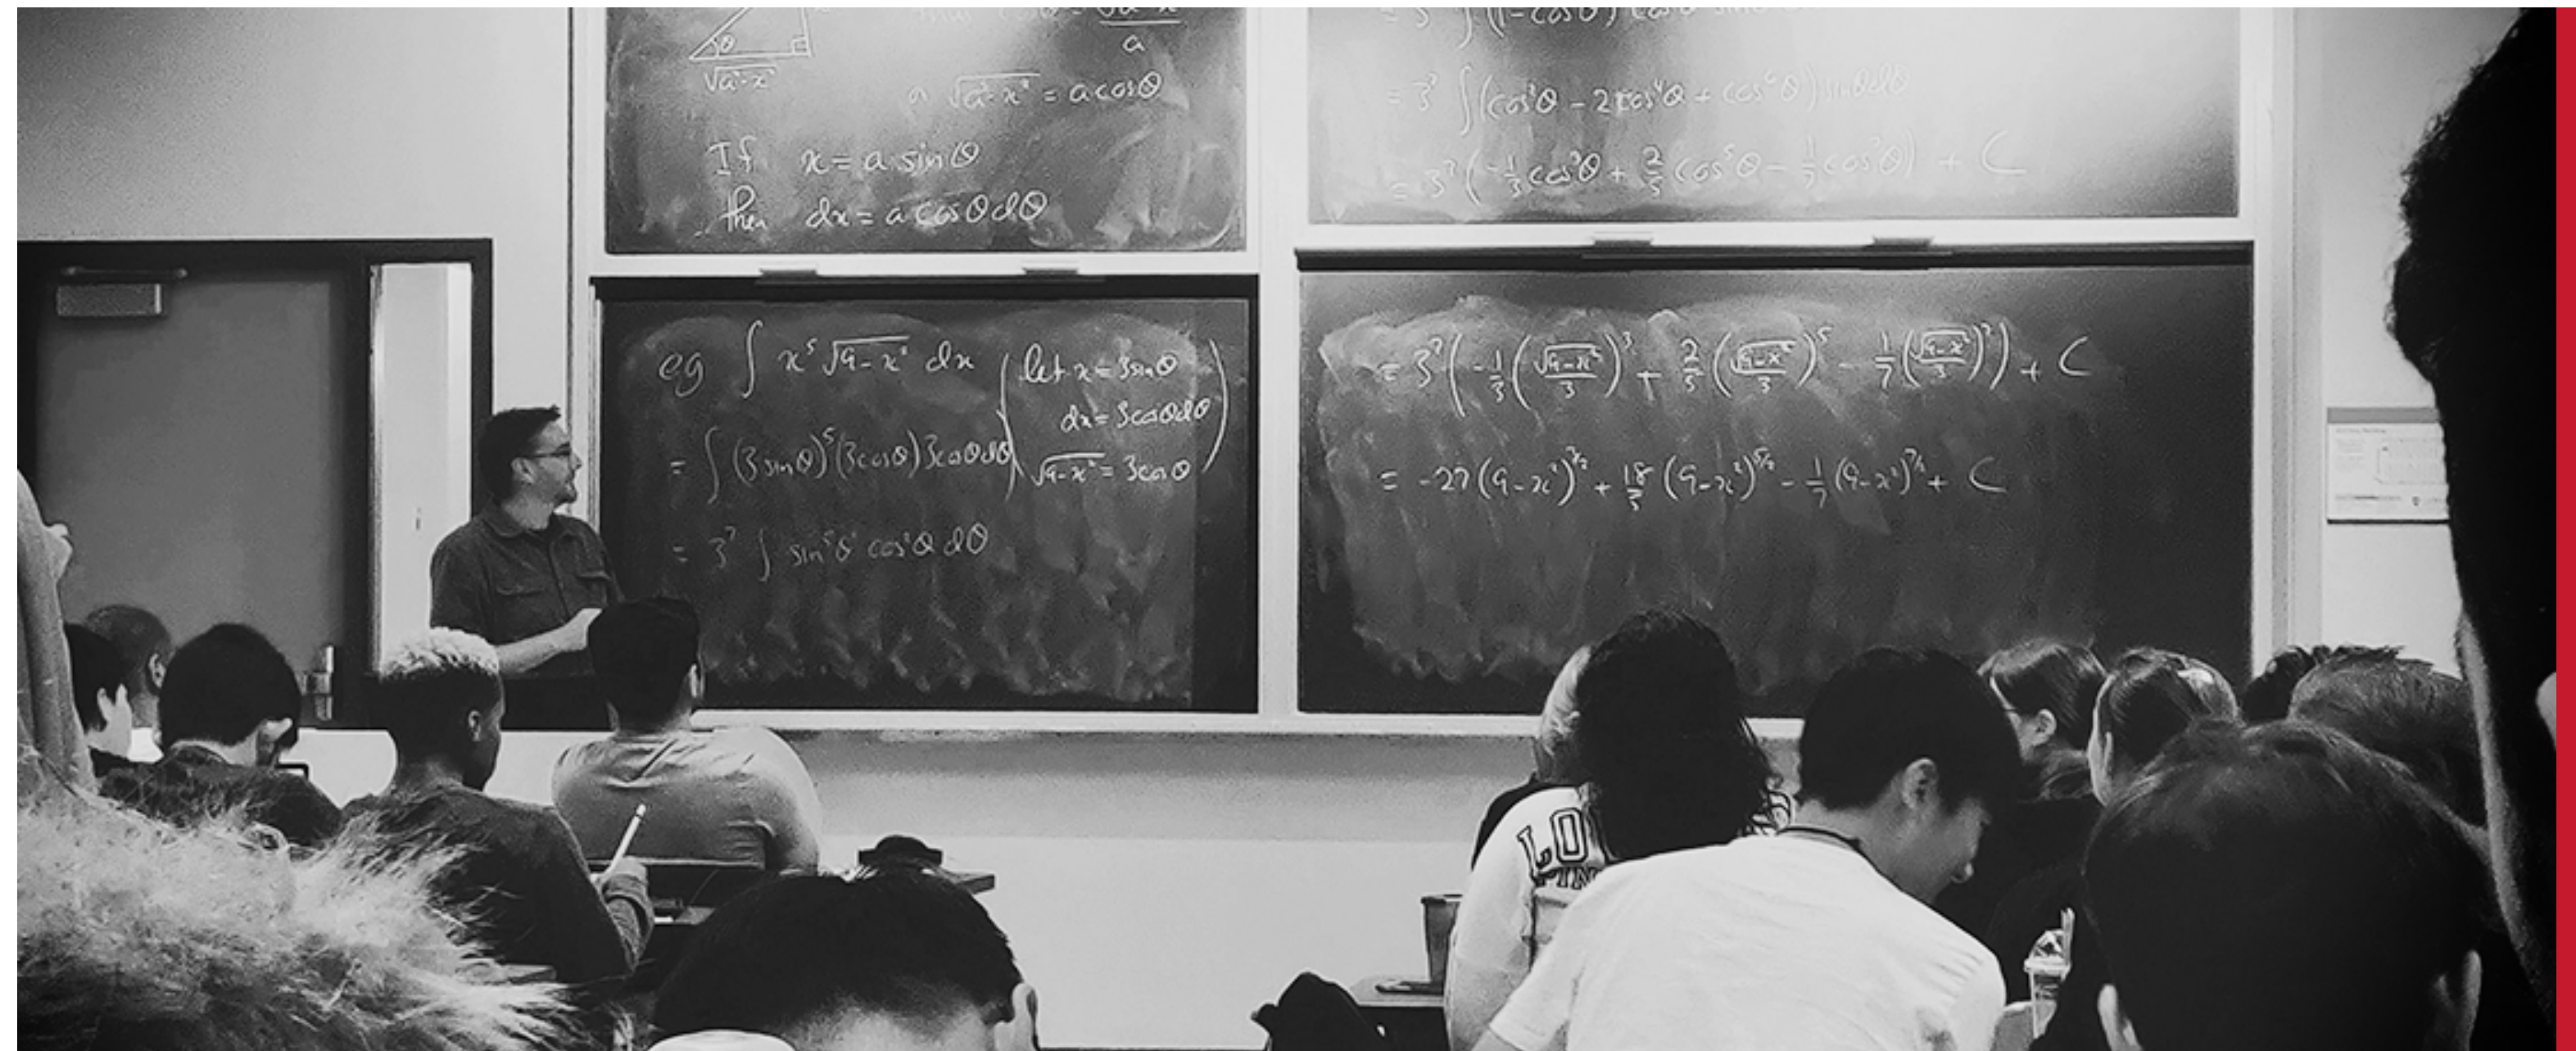 θ
√a²-x²
a
a √a²-x² = a cosθ
If x = a sinθ
then dx = a cosθdθ
eg ∫ x⁵ √9-x² dx (let x = 3sinθ
dx = 3cosθdθ
√9-x² = 3cosθ)
= ∫ (3 sinθ)⁵ (3cosθ) 3cosθdθ
= 3⁷ ∫ sin⁵θ cos²θ dθ
= 3⁷ ∫ (cos²θ - 2cos⁴θ + cos⁶θ) sinθdθ
= 3⁷ (-1/3 cos³θ + 2/5 cos⁵θ - 1/7 cos⁷θ) + C
= 3⁷ (-1/3 (√9-x²/3)³ + 2/5 (√9-x²/3)⁵ - 1/7 (√9-x²/3)⁷) + C
= -27 (9-x²)^3/2 + 18/5 (9-x²)^5/2 - 1/7 (9-x²)^7/2 + C
LO